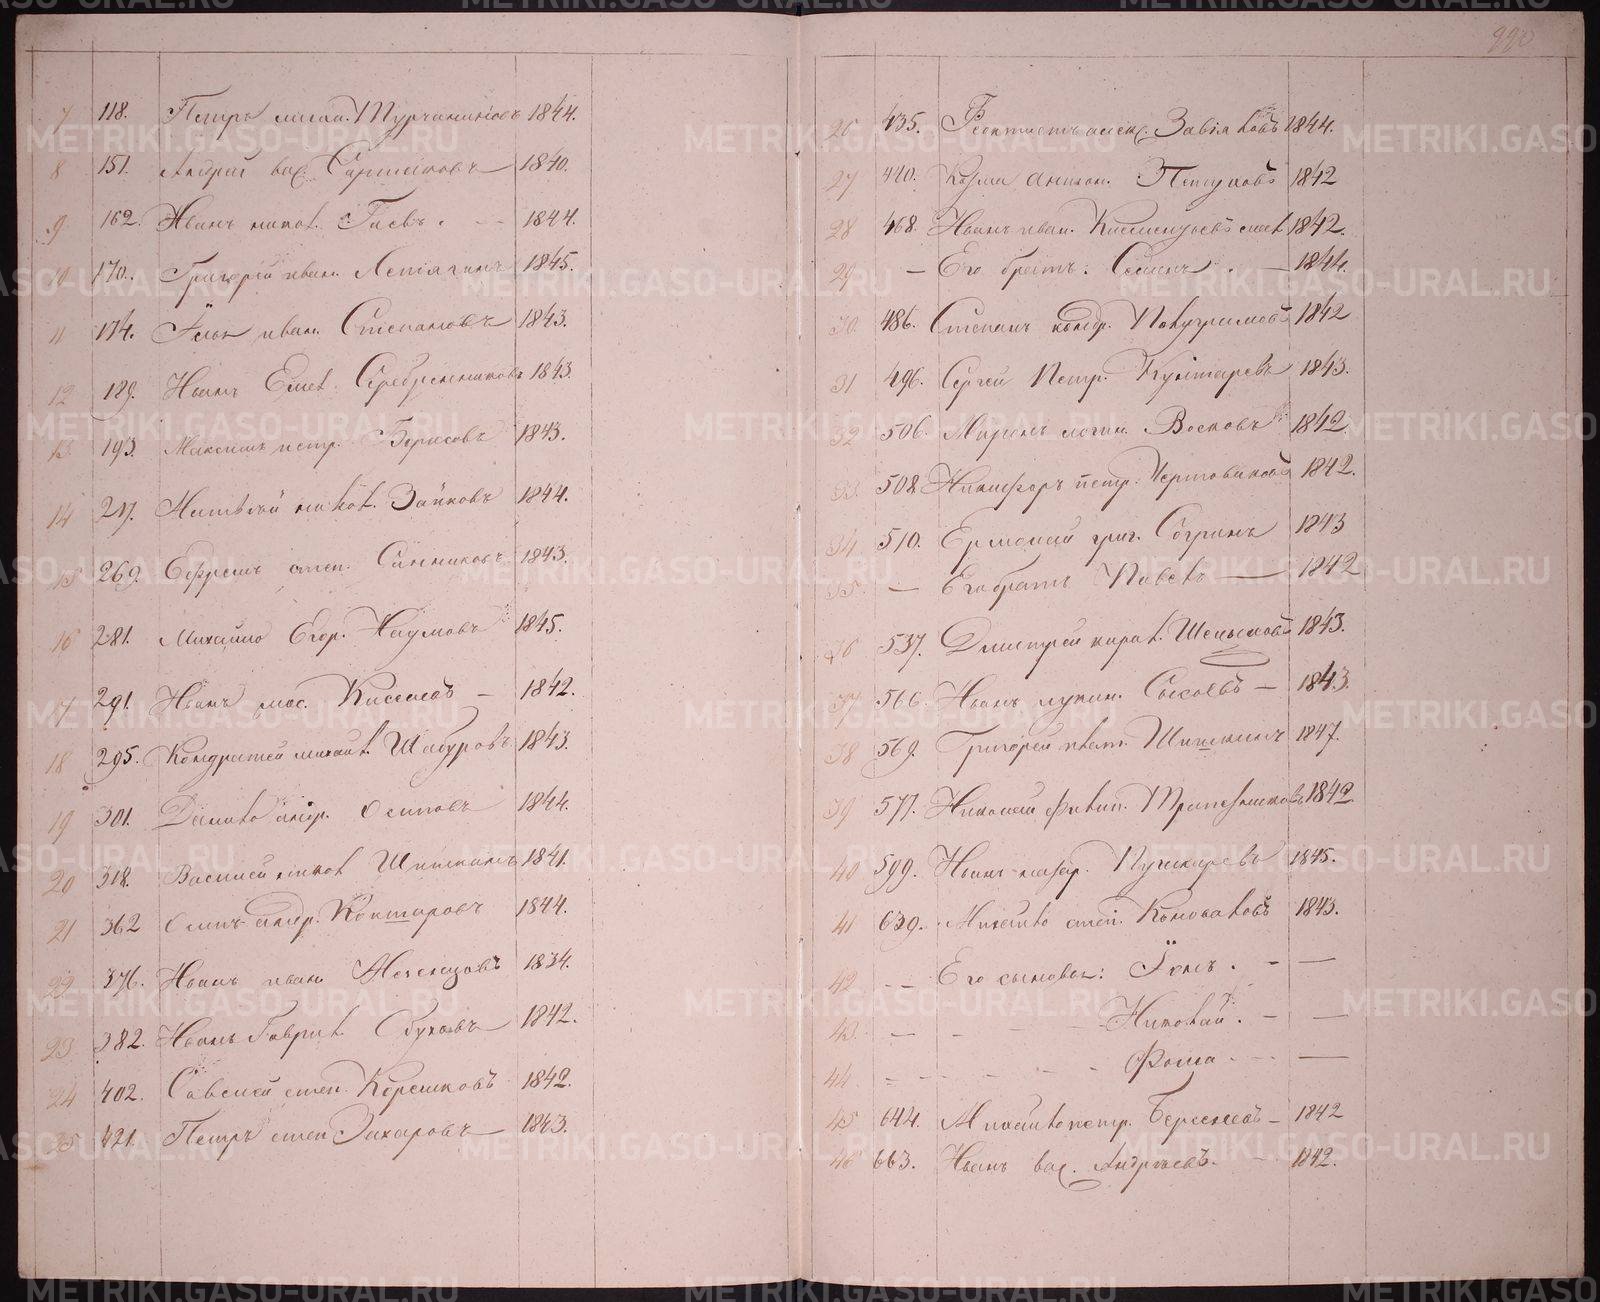 7 118. Петръ Турчаниновъ 1844.
8 151. Андрей вас. 1840.
9 162. Иванъ никол. Гаевъ. 1844.
10 170. Григорій иван. Летягинъ 1845.
11 174. иван. Степановъ 1843.
12 189. Иванъ Емел. Серебренниковъ 1843.
13 193. Максимъ петр. Борисовъ 1843.
14 217. Матвѣй никол. Зайковъ 1844.
15 269. Ефремъ степ. Санниковъ 1843.
16 281. Михайло Егор. Наумовъ 1845.
17 291. Иванъ Киселевъ — 1842.
18 295. Кондратей михайл. Шабуровъ 1843.
19 301. Данило андр. Осиповъ 1844.
20 318. Василей никол. Шишкинъ 1841.
21 362 андр. 1844.
22 376. Иванъ иван. 1834.
23 382. Иванъ Гаврил. Обуховъ 1842.
24 402. Савелей степ. Корешковъ 1842.
25 421. Петръ степ. Захаровъ 1843.
220
26 435. Феоктистъ алекс. Завьяловъ 1844.
27 440. Козма Петуховъ 1842
28 468. Иванъ иван. 1842.
29 — Его братъ: Семенъ. — 1844.
30. 486. Степанъ кондр. 1842
31 496. Сергей Петр. 1843.
32 506. Миронъ логин. Восковъ 1842.
33. 508. Никифоръ петр. 1842.
34 510. Ермолай григ. Согринъ 1843
35. — Его братъ Павелъ — 1842
36 537. Дмитрей кирил. 1843.
37 566. Иванъ лукин. Сысоевъ — 1843.
38 569. Григорей иван. Шишкинъ 1847.
39 577. Николай филип. Трапезниковъ 1842.
40 599. Иванъ назар. Пушкаревъ 1845.
41 639. Михайло степ. Коноваловъ 1843.
42 — — Его сыновья: . — —
43. — — Николай. — —
44 — — Фома — —
45 644. Михайло петр. Береснев — 1842
46 663. Иванъ вас. Андреевъ. — 1842.
METRIKI.GASO-URAL.RU